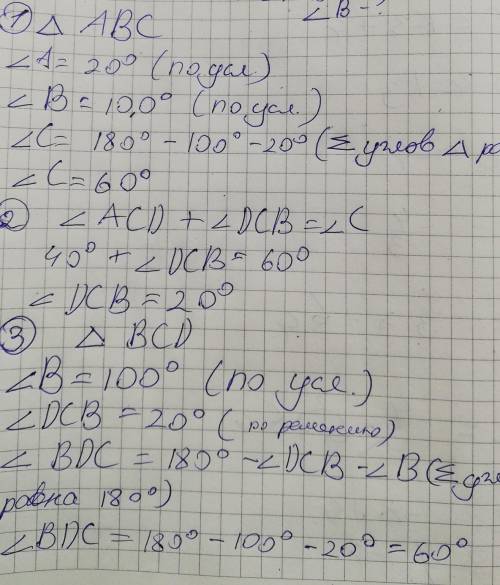 ∠B - ?
① △ ABC
∠A = 20° (по усл.)
∠B = 100° (по усл.)
∠C = 180° - 100° - 20° (Σ углов △ ра
∠C = 60°
② ∠ACD + ∠DCB = ∠C
40° + ∠DCB = 60°
∠DCB = 20°
③ △ BCD
∠B = 100° (по усл.)
∠DCB = 20° (по решению)
∠BDC = 180° - ∠DCB - ∠B (Σ угл
равна 180°)
∠BDC = 180° - 100° - 20° = 60°